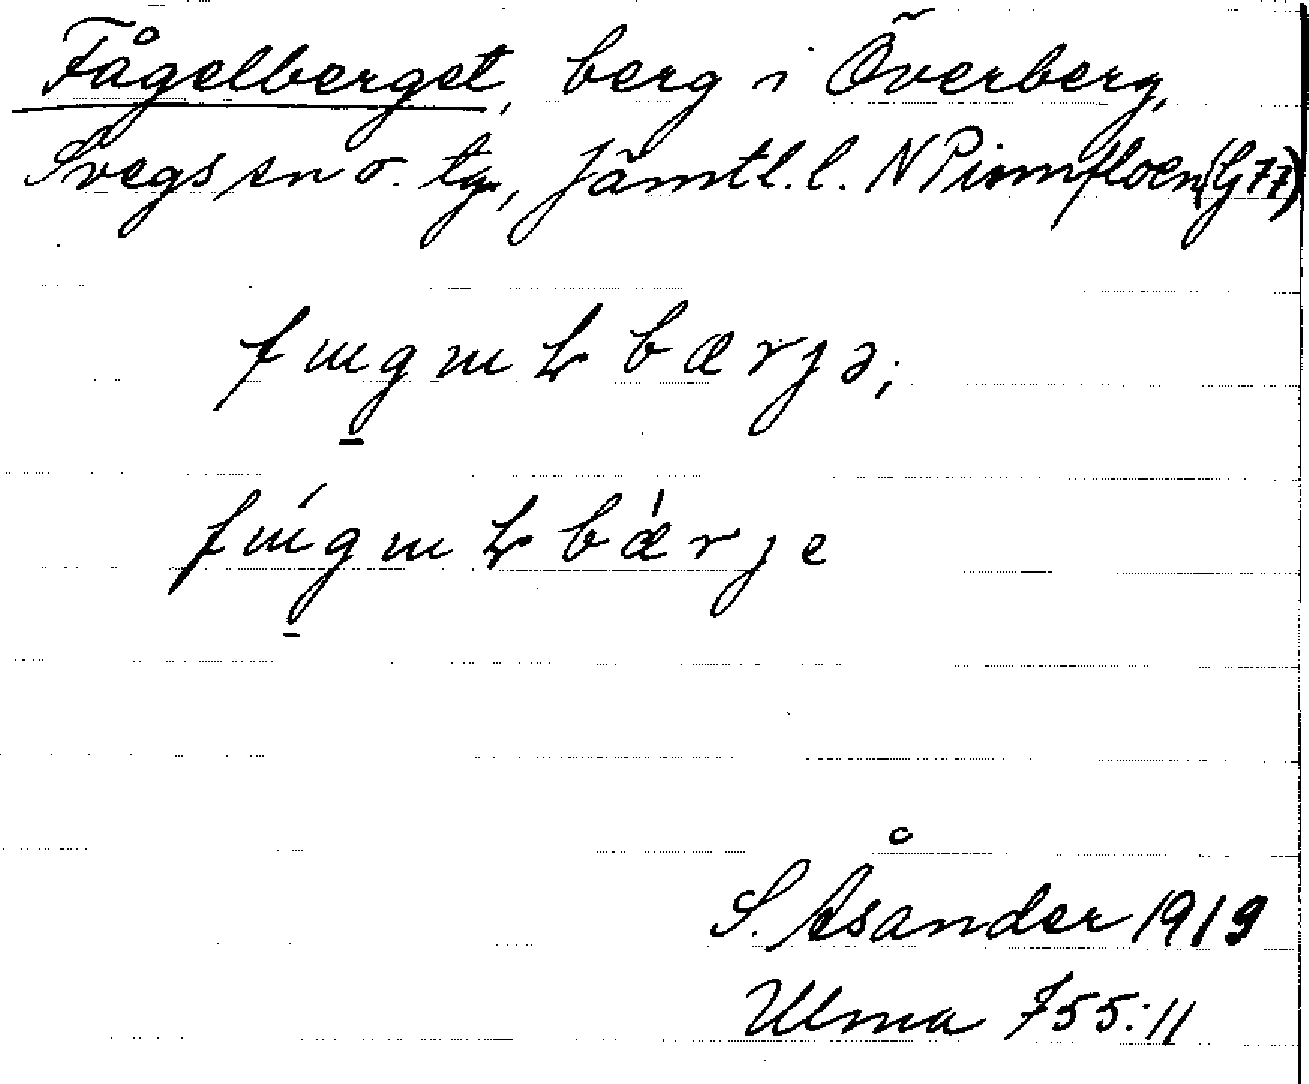 Fågelberget, berg i Överberg,
Svegs sn o. tg, Jämtl. l. N Pinnfloen (G77)
fɯgɯɫbærjə;
fɯ́gɯɫbǽrje
S. Åsander 1919
Ulma 755:11